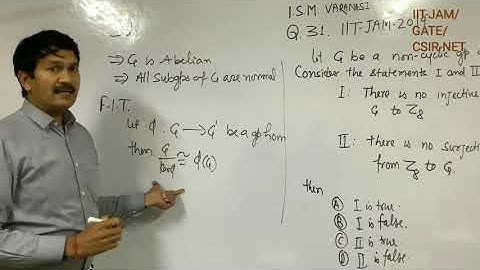 ⇒ G is Abelian
⇒ All Subgps of G are normal
F.I.T.
let φ : G → G' be a gp hom
then G/kerφ ≅ φ(G)
I.S.M. VARANASI
Q 31. IIT-JAM-2019
IIT-JAM/
GATE/
CSIR-NET
let G be a non-cyclic gp
Consider the statements I and II
I: There is no injective
G to Z8
II: there is no surjec
from Z8 to G
then
A I is true.
B I is false.
C II is true
D II is false.